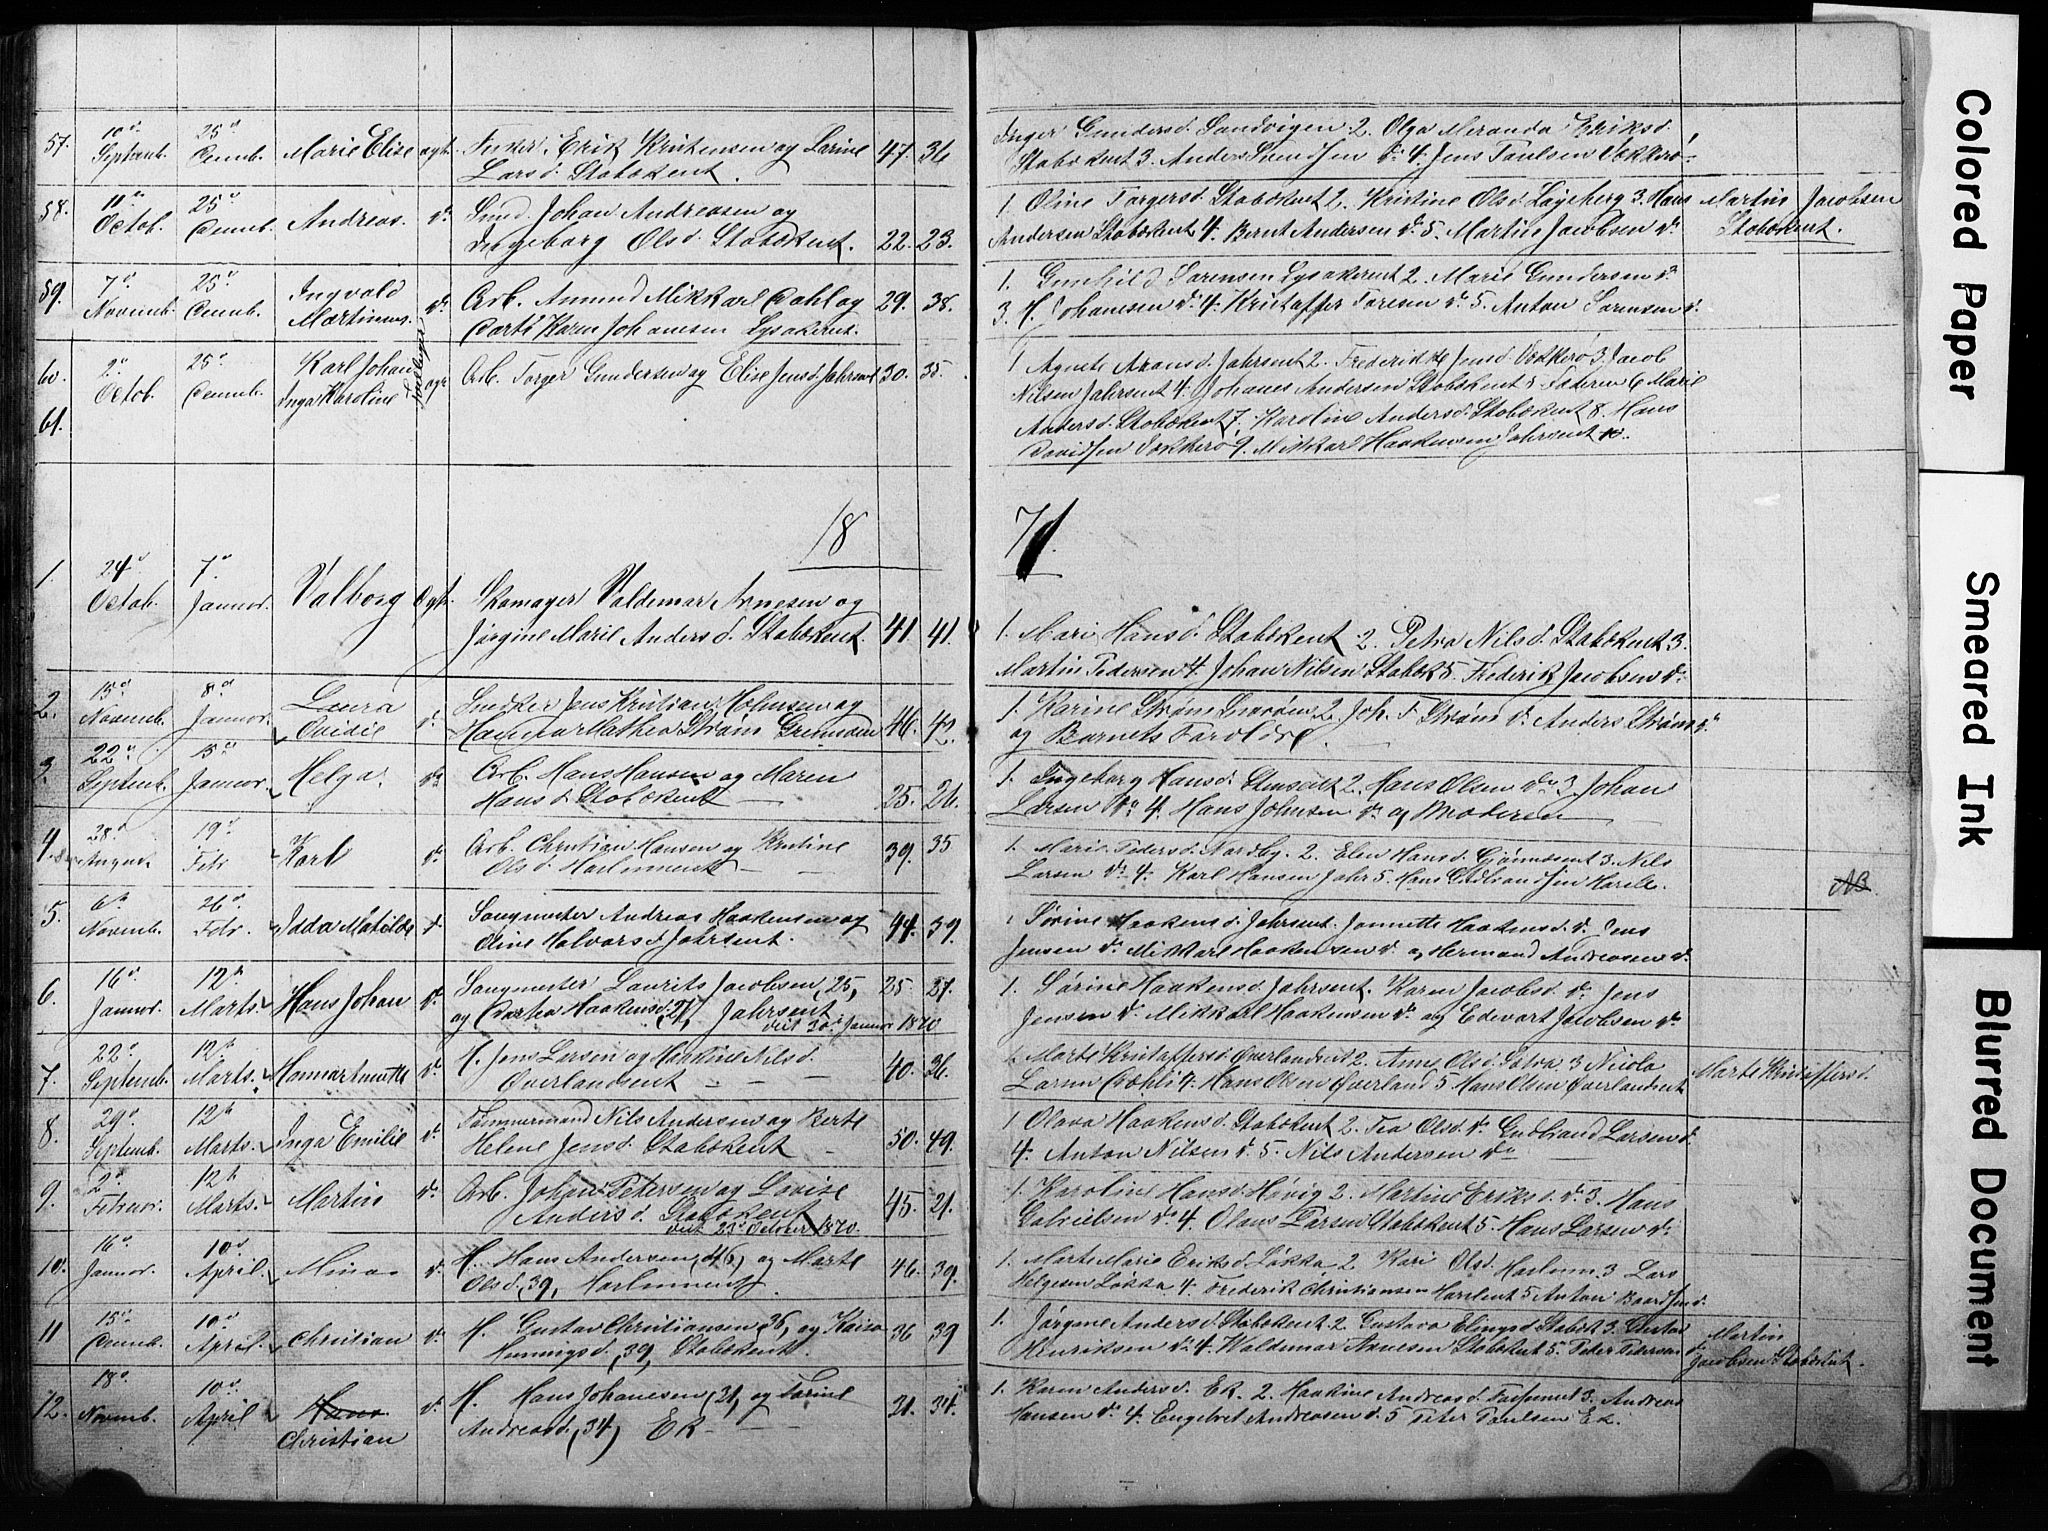 57. 10d Septemb. 25d Decemb. Marie Elise ægt. Snker. Erik Kristensen og Larine 47. 36
Larsd. Stabækent.
Inger Gundersd. Sandvigen 2. Olga Meranda Eriksd.
Stabækent 3. Anders Svendsen do 4. Jens Paulsen Vækkerø
58. 11d Octob. 25d Decemb. Andreas. do Smed. Johan Andreasen og
Ingeborg Olsd. Stabækent. 22. 23.
1. Oline Torgersd. Stabækent 2. Kristine Olsd. Løgeberg 3. Hans
Andersen Stabækent 4. Bernt Andersen do 5. Martin Jacobsen do
Martin Jacobsen
Stabækent.
59. 7d Novemb. 25d Decemb. Ingvald
Martinius. do Arb. Amund Mikkael Dahl og 29. 38.
Dorte Karen Johanesen Lysakerent.
1. Gunhild Sørensen Lysakerent 2. Marie Gundersen do
3. H. Johanesen do 4. Kristoffer Toresen do 5. Anton Sørensen do
60. 2d Octob. 25d Decemb. Karl Johan
61. Inga Karoline Tvillinger ægt Arb. Torger Gundersen og Elise Jensd. Jahrsent 30. 35.
1 Agnete Aronsd. Jahrsent 2. Frederikke Jensd. Vækkerø 3 Jacob
Nilsen Jahrsent 4. Johanes Andersen Stabækent 5 Faderen 6 Marie
Andersd. Stabækent 7. Karoline Andersd. Stabækent 8. Hans
Davidsen Vækkerø 9. Mikkael Haakensen Jahrsent
18
71.
1. 24d Octob. 7d Januar. Valborg Ægt. Skomager Valdemar Arnesen og
Jørgine Marie Andersd. Stabækent 41. 41.
1. Mari Hansd. Stabækent 2. Petra Nilsd. Stabækent 3.
Martin Pedersen 4. Johan Nilsen Stabæk 5. Frederik Jacobsen do
2. 15d Novemb. 8d Januar. Laura
Ovidie do Snedker Jens Kristian Holmsen og
Hanna Mathea Strøm 46. 42.
1. Karine Strøm 2. Joh. F Strøm do Anders Strøm do
og Barnets Forældre.
3. 22d Septemb. 15d Januar. Helga. do Arb. Hans Hansen og Maren
Hansd. Stabækent 25. 26.
1. Ingeborg Hansd. 2. Hans Olsen do 3 Johan
Larsen do 4. Hans Johnsen do og Moderen
4. 28d August. 19d Febr Karl do Arb. Christian Hansen og Kristine 39. 35
Olsd. Haslument
1. Marie Pedersd. Nordby. 2. Elen Hansd. Gjønnesent 3. Nils
Larsen do 4. Karl Hansen Jahr 5. Hans
NB.
5. 6d Novemb. 26d Febr. Idda Matilde do Saugmester Andreas Haakensen og
Oline Halvorsd. Jahrsent. 44. 39.
1 Sørine Haakensd. Jahrsent. Jannette Haakensd. do Jens
Jensen do Mikkael Haakensen do og Hermand Andreasen do
6. 16d Januar. 12te Marts. Hans Johan do Saugmester Laurits Jacobsen, 25, 25 27.
og Dorthea Haakensd. 27, Jahrsent
viet 30te Januar 1870
1. Sørine Haakensd. Jahrsent. Karen Jacobsd. do Jens
Jensen do Mikkael Haakensen do og Edevart Jacobsen do
7. 22d Septemb. 12te Marts. Hanna do H. Jens Larsen og Haakine Nilsd.
Øverlandsent 40. 36.
1. Marte Kristoffersd. Øverlandsent 2. Anne Olsd. 3 Nicola
Larsen Dæhli 4. Hans Olsen Øverland 5 Hans Olsen Øverlandsent
Marte Kristoffersd.
8. 29d Septemb. 12te Marts. Inga Emilie do Tømmermand Nils Andersen og Berte
Helene Jensd. Stabækent 50. 49.
1 Olava Haakensd. Stabækent 2. Tea Olsd. do Gudbrand Larsen do
4. Anton Nilsen do 5. Nils Andersen do
9. 2d Februar. 12te Marts. Martin do Arb. Johan Petersen og Lovise 45. 21.
Andersd. Stabækent
viet 23d October 1870.
1. Karoline Hansd. Høvig 2. Martine Eriksd. do 3. Hans
Gabrielsen do 4. Olaus Larsen Stabækent 5. Hans Larsen do
10. 16d Januar. 10d April. Mina do H. Hans Andersen (46, og Marte 46. 39.
Olsd., 39, Haslument.
1. Marte Marie Eriksd. Løkka 2 Kari Olsd. Haslum 3 Lars
Helgesen Løkka 4. Frederik Christiansen Haslent 5 Anton Baardsend.
11 15d Decemb. 10d April. Christian do H. Gustav Christiansen 36, og Kaisa 36 39
Henningsd. 39, Stabækent
1. Jørgine Andersd. Stabækent 2. Gustava Elingsd. Stabæk 3. Gustav
Henriksen do 4. Waldemar Arnesen Stabækent 5. Peter Pedersen do
Martin
Jacobsen Stabækent.
12. 18d Novemb. 10d April Hans
Christian do H. Hans Johanesen (31, og Karine 31. 34.
Andreasd. (34) Ek
1. Karen Andersd. Ek. 2. Haakine Andreasd. 3. Andreas
Hansen do 4. Engebret Andreasen do 5 Peter Paulsen Ek.
Colored Paper
Smeared Ink
Blurred Document